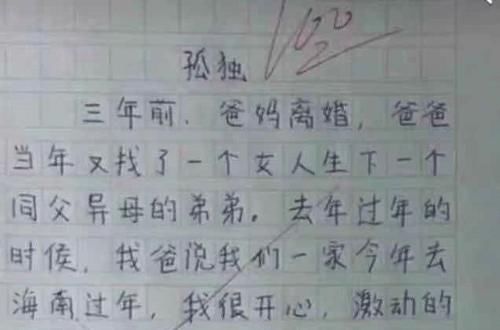 100
孤独
三年前，爸妈离婚，爸爸
当年又找了一个女人生下一个
同父异母的弟弟。去年过年的
时侯，我爸说我们一家今年去
海南过年，我很开心，激动的